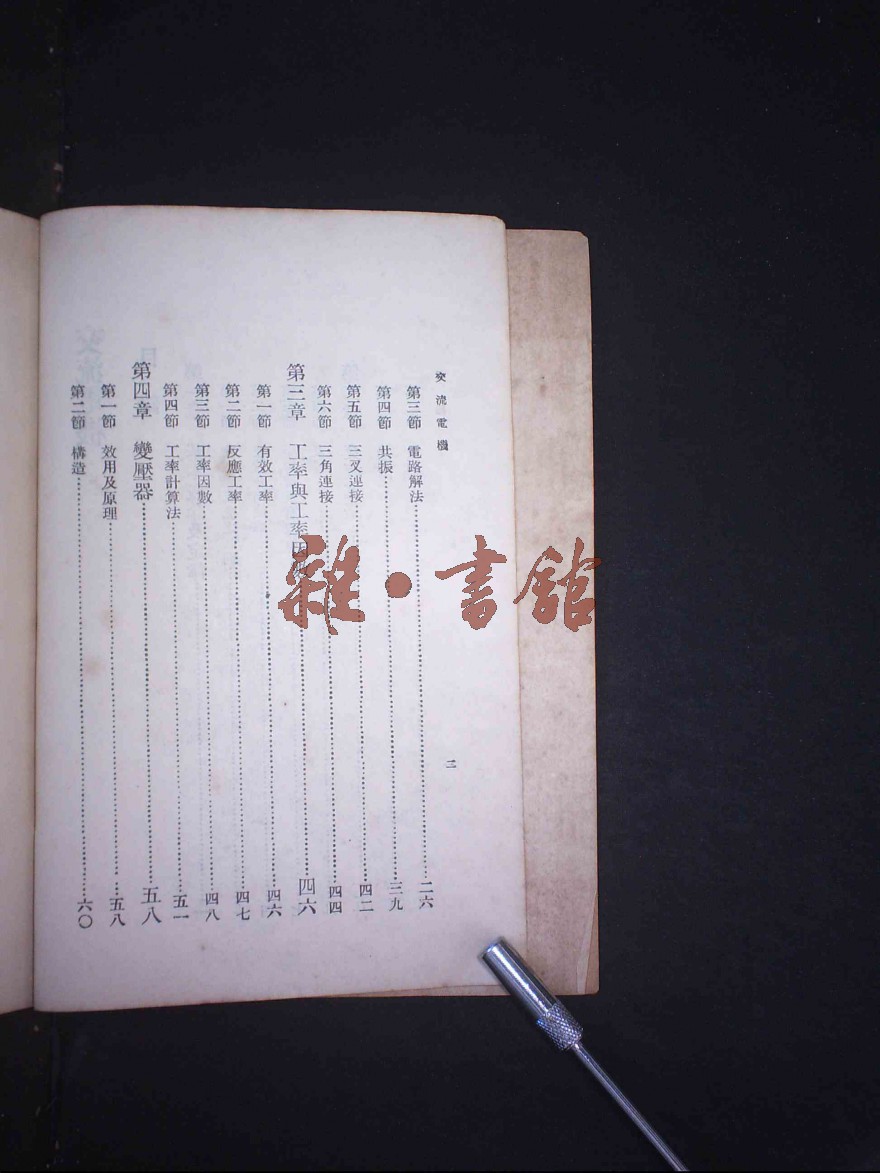 交流電機
第三節 電路解法 二六
第四節 共振 三九
第五節 三叉連接 四二
第六節 三角連接 四四
第三章 工率與工率因 四六
第一節 有效工率 四六
第二節 反應工率 四七
第三節 工率因數 四八
第四節 工率計算法 五一
第四章 變壓器 五八
第一節 效用及原理 五八
第二節 構造 六〇
雜·書館